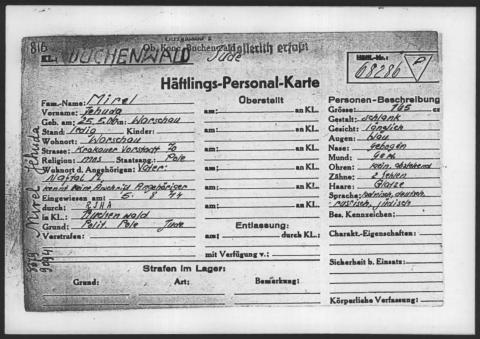 816
Ob. Konz. Buchenwald
Hollerith erfaßt
KL.: BUCHENWALD Jude
Häftl.-Nr.: 68286 P
Häftlings-Personal-Karte
Fam.-Name: Mirel
Vorname: Jehuda
Geb. am: in: Warschau
Stand: ledig Kinder:
Wohnort: Warschau
Strasse: Krakauer Vorstadt 70
Religion: mos Staatsang.: Pole
Wohnort d. Angehörigen: Vater:
Naftal M.
Angehöriger
Eingewiesen am: 5. 8 44
durch: RSHA
in KL.: Buchenwald
Grund: Polit. Pole Jude
Vorstrafen:
Myrel Jehuda
Überstellt
am: an KL.
am: an KL.
am: an KL.
am: an KL.
am: an KL.
am: an KL.
Entlassung:
am: durch KL.:
mit Verfügung v.:
Personen-Beschreibung
Grösse: 165 cm
Gestalt: schlank
Gesicht: länglich
Augen: blau
Nase: gebogen
Mund: Gew.
Ohren: klein, abstehend
Zähne: 2 fehlen
Haare: Glatze
Sprache: polnisch, deutsch,
russisch, jüdisch
Bes. Kennzeichen:
Charakt.-Eigenschaften:
Sicherheit b. Einsatz:
Körperliche Verfassung:
Strafen im Lager:
Grund: Art: Bemerkung: